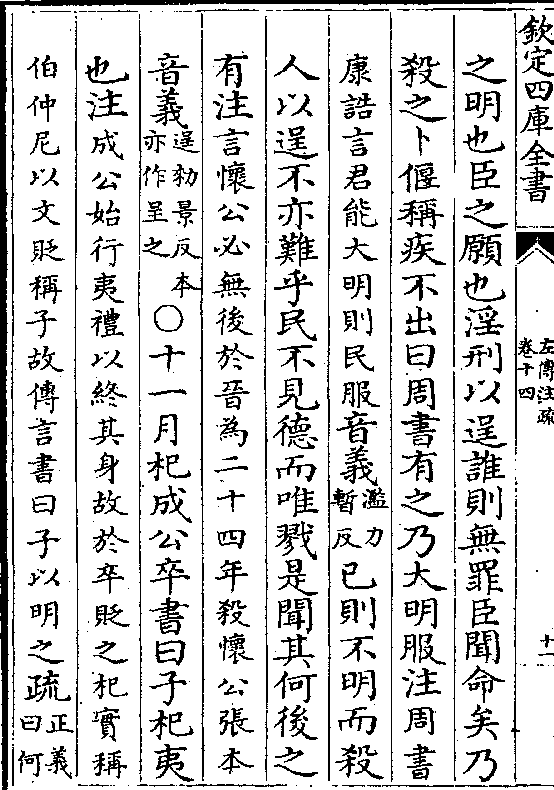 欽定四庫全書
左傳注疏
卷十四
十一
之明也臣之願也淫刑以逞誰則無罪臣聞命矣乃
殺之卜偃稱疾不出曰周書有之乃大明服注周書
康誥言君能大明則民服音義濫力暫反己則不明而殺
人以逞不亦難乎民不見德而唯戮是聞其何後之
有注言懷公必無後於晉為二十四年殺懷公張本
音義逞勑景反本亦作呈之〇十一月杞成公卒書曰子杞夷
也注成公始行夷禮以終其身故於卒貶之杞實稱
伯仲尼以文貶稱子故傳言書曰子以明之疏正義曰何